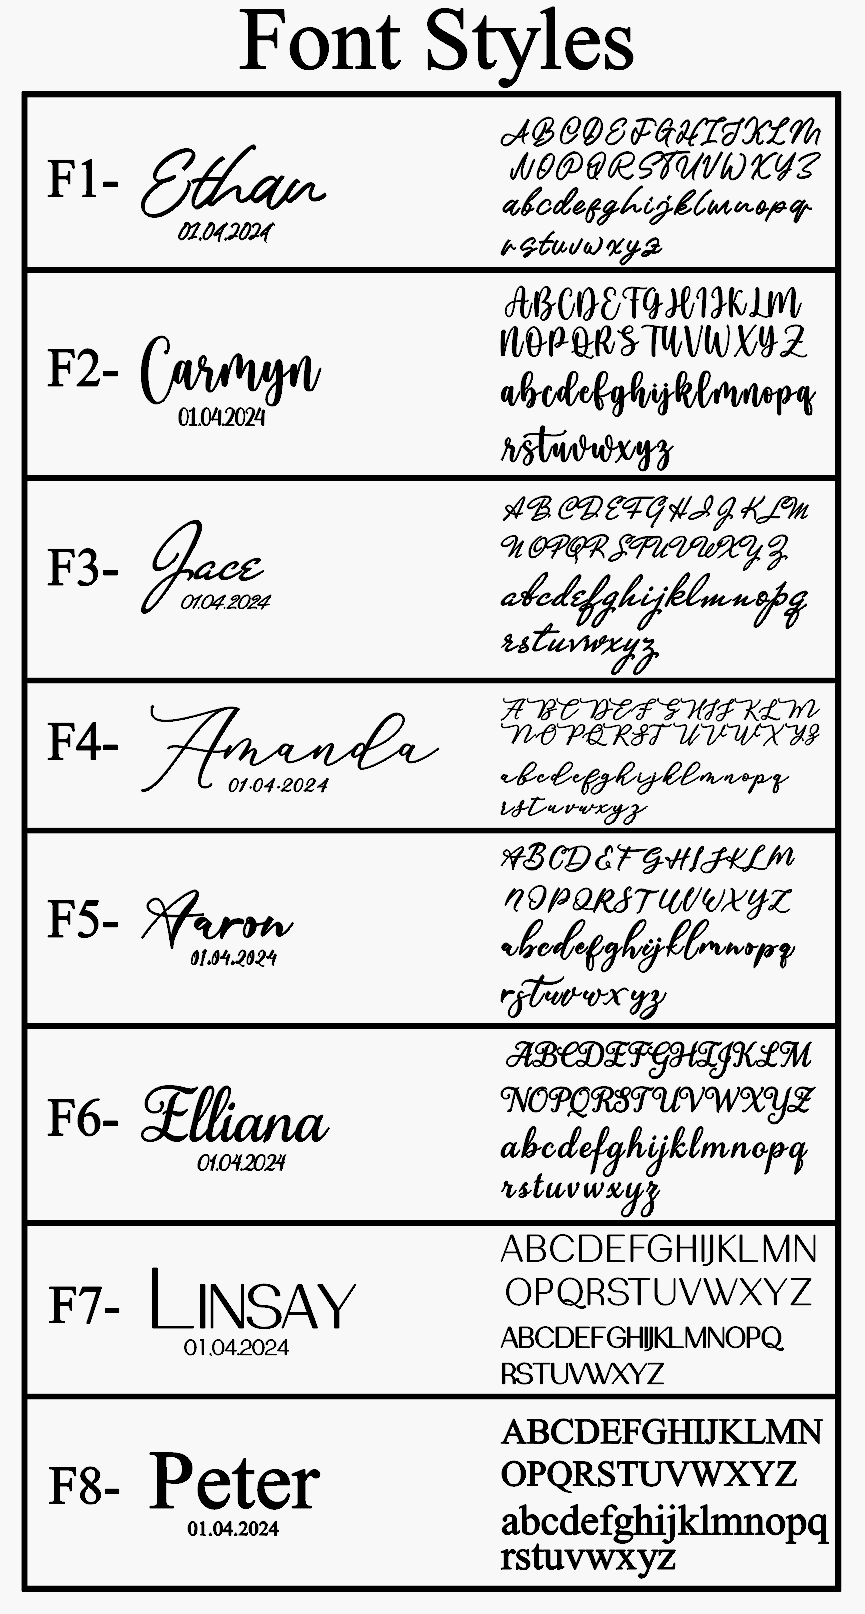 Font Styles
F1- Ethan
01.04.2024
ABCDEFGHIJKLM
NOPQRSTUVWXYZ
abcdefghijklmnopqr
rstuvwxyz
F2- Carmyn
01.04.2024
ABCDEFGHIJKLM
NOPQRSTUVWXYZ
abcdefghijklmnopq
rstuvwxyz
F3- Jace
01.04.2024
ABCDEFGHIJKLM
NOPQRSTUVWXYZ
abcdefghijklmnopq
rstuvwxyz
F4- Amanda
01.04.2024
ABCDEFGHIJKLM
NOPQRSTUVWXYZ
abcdefghijklmnopq
rstuvwxyz
F5- Aaron
01.04.2024
ABCDEFGHIJKLM
NOPQRSTUVWXYZ
abcdefghijklmnopq
rstuvwxyz
F6- Elliana
01.04.2024
ABCDEFGHIJKLM
NOPQRSTUVWXYZ
abcdefghijklmnopq
rstuvwxyz
F7- LINSAY
01.04.2024
ABCDEFGHIJKLMN
OPQRSTUVWXYZ
ABCDEFGHIJKLMNOPQ
RSTUVWXYZ
F8- Peter
01.04.2024
ABCDEFGHIJKLMN
OPQRSTUVWXYZ
abcdefghijklmnopq
rstuvwxyz